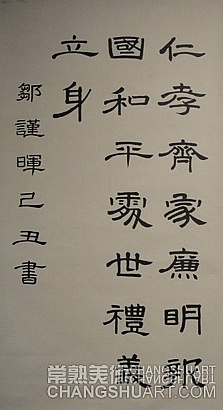 仁孝齊家廉明報
國和平處世禮義
立身
鄒謹暉己丑書
常熟美術 CHANGSHUART
CHANGSHUART.COM